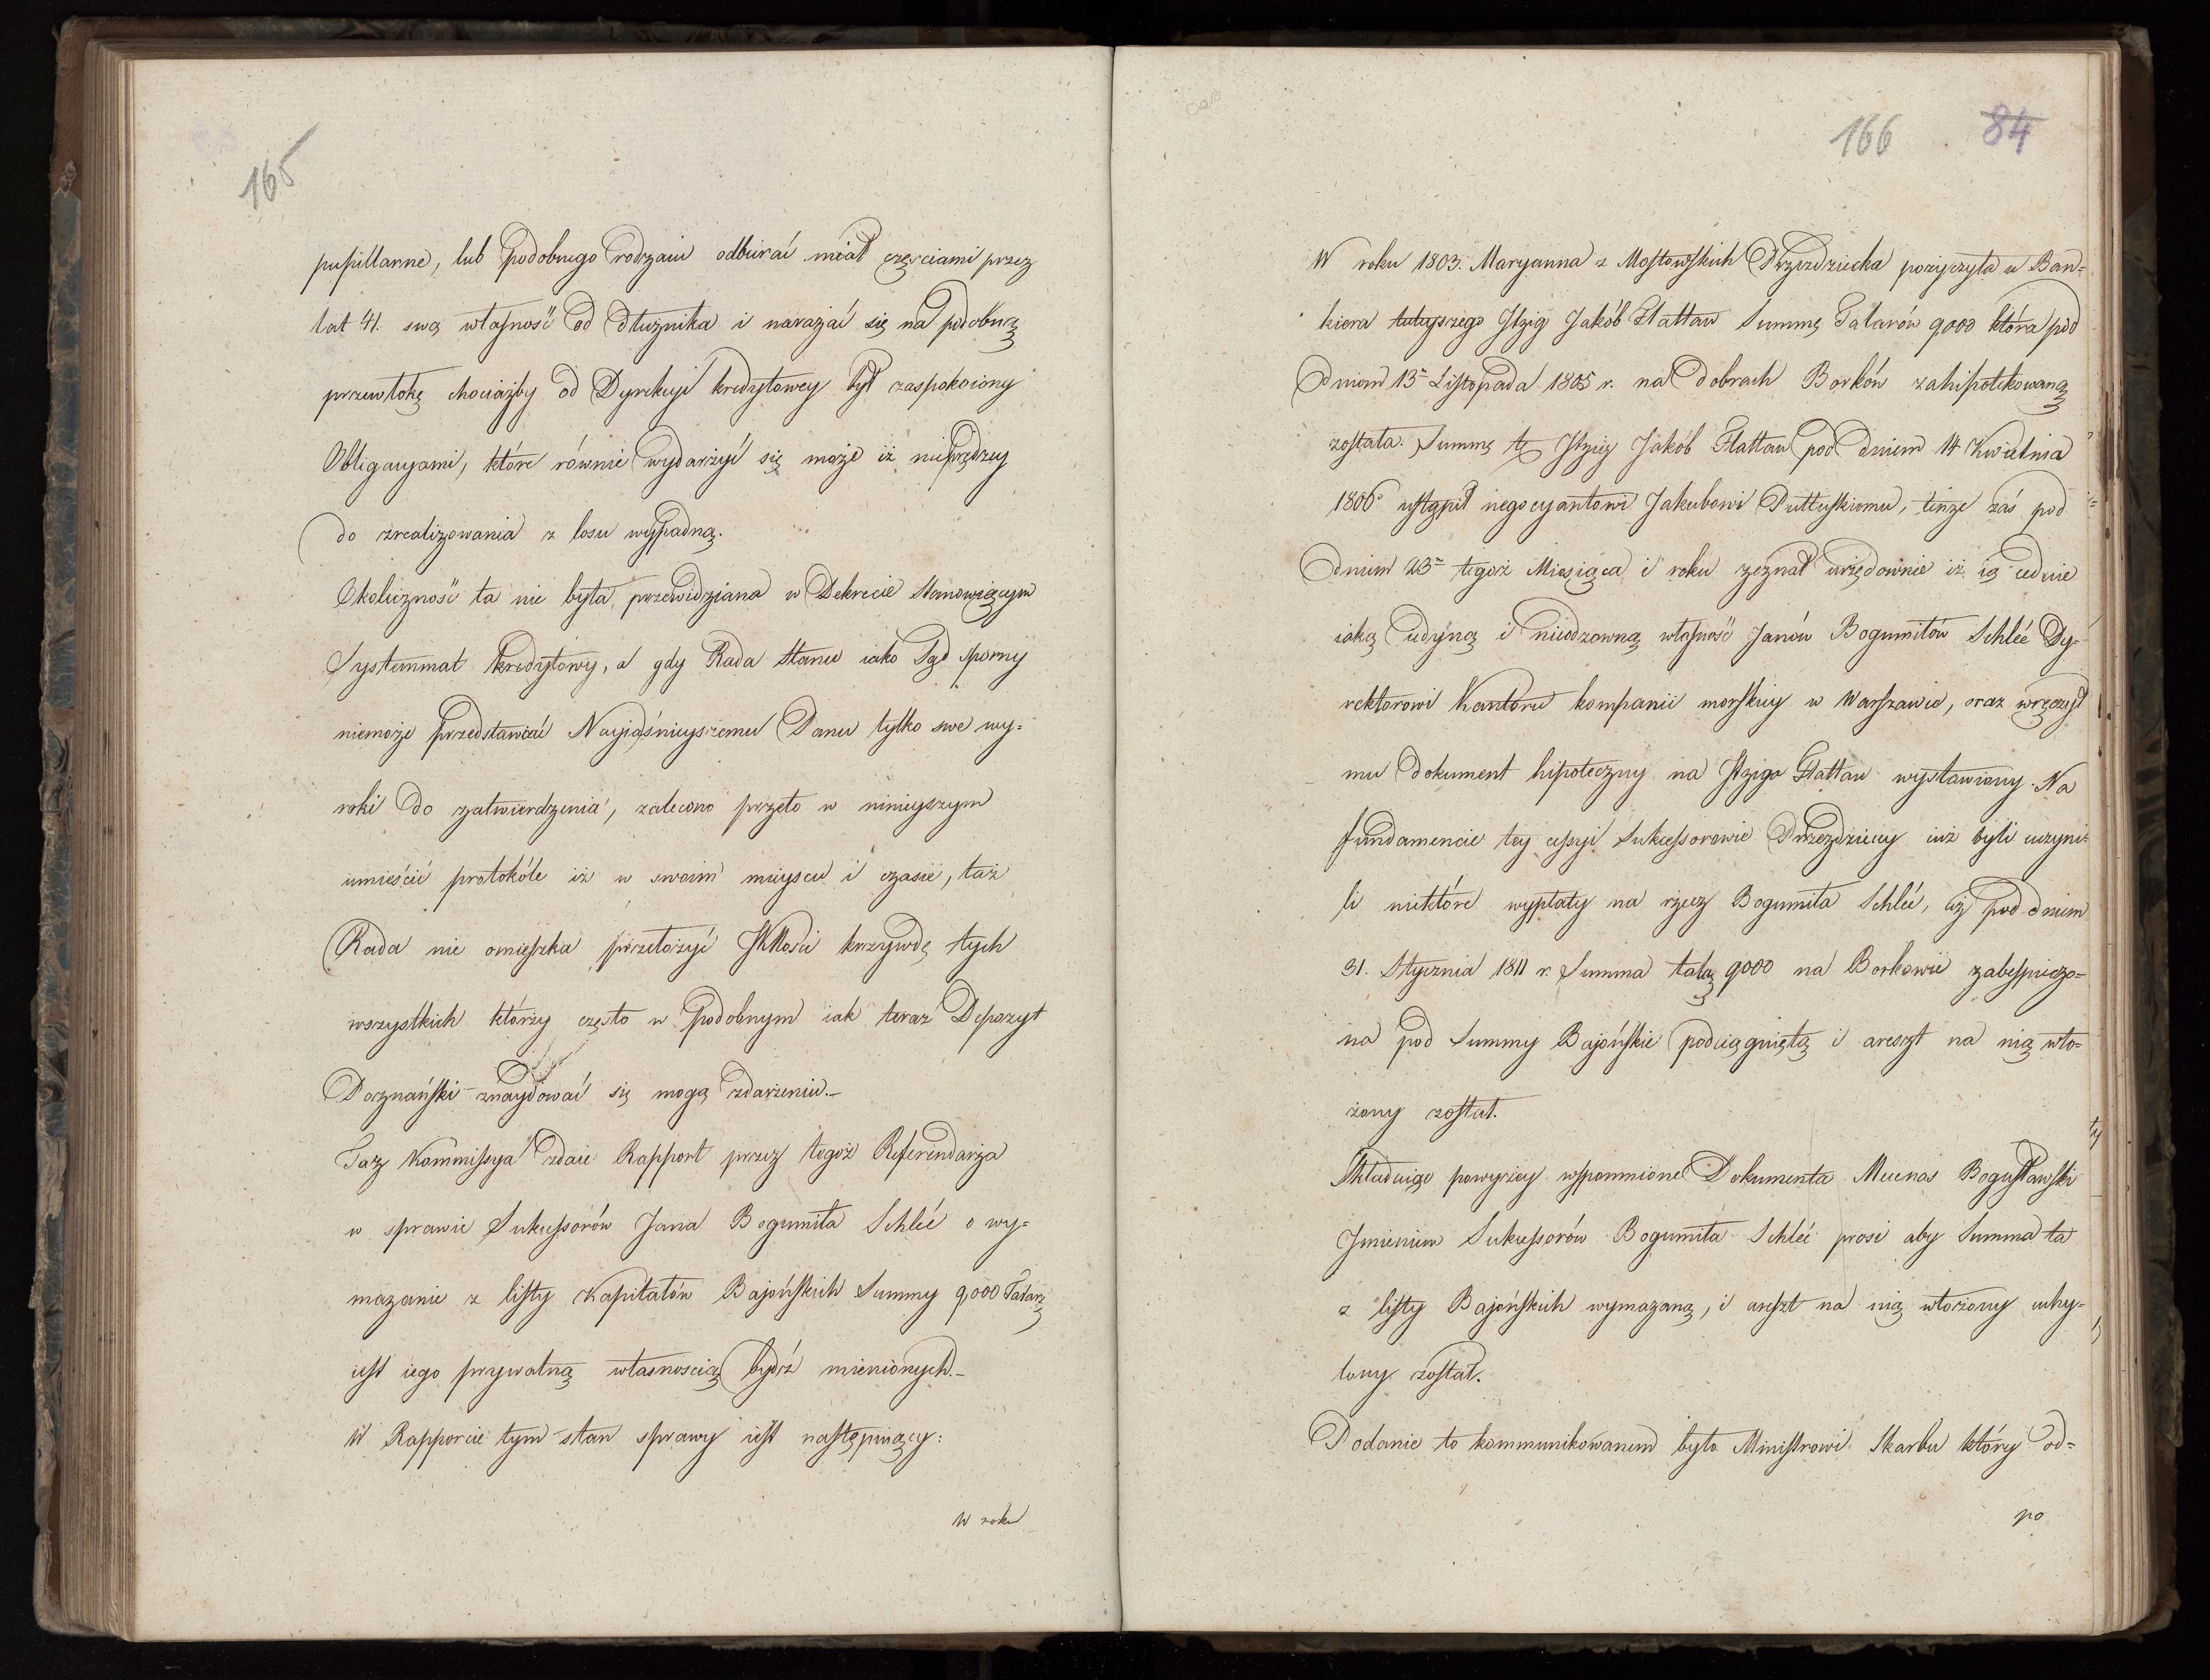 165
pupillarne, lub podobnego rodzaiu odbierać miał częściami przez
lat 41. swą własność od dłużnika i narażać się na podobną
przewłokę chociażby od Dyrekcyi kredytowey był zaspokoiony
Obligacyami, które równie wydarzyć się może iż nieprędzey
do zrealizowania z losu wypadną.
Okoliczność ta nie była przewidziana w Dekrecie stanowiącym
Systemmat kredytowy, a gdy Rada Stanu iako Sąd sporny
niemoże przedstawiać Nayiaśnieyszemu Panu tylko swe wy=
roki do zatwierdzenia, zalecono przeto w ninieyszym
umieścić protokóle iż w swoim mieyscu i czasie, taż
Rada nie omieszka przełożyć JKMości krzywdę tych
wszystkich którzy często w podobnym iak teraz Depozyt
Poznański znaydować się mogą zdarzeniu.-
Taż Kommissya zdaie Rapport przez tegoż Referendarza
w sprawie Sukcessorów Jana Bogumiła Schleé o wy=
mazanie z listy Kapitałów Bajońskich Summy 9,000 Talar.
iest iego prywatną własnością bydź mienionych.-
W Rapporcie tym stan sprawy iest następuiący:
W roku
166 84
W roku 1803. Maryanna z Mostowskich Przezdziecka pożyczyła u Ban=
kiera tuteyszego Itzig Jakób Flattau Summę Talarów 9000 która pod
Dniem 13 Listopada 1805 r. na dobrach Borków zahipotekowaną
została. Summę tę Itzig Jakób Flattau pod dniem 14 Kwietnia
1806 ustąpił negocyantowi Jakubowi Pułtuskiemu, tenże zaś pod
Dniem 23 tegoż Miesiąca i roku zeznał urzędownie iż ią ceduie
iaką iedyną i nieodzowną własność Janów Bogumiłów Schleé Dy=
rektorowi Kantoru kompanii morskiey w Warszawie, oraz wręczył
mu Dokument hipoteczny na Itziga Flattau wystawiony. Na
fundamencie tey cessyi Sukcessorowie Przezdzieccy iuż byli uczyni=
li niektóre wypłaty na rzecz Bogumiła Schleé, aż pod dniem
31. Stycznia 1811 r. Summa talar. 9000 na Borkowie zabespieczo=
na pod Summy Bajońskie podciągniętą i areszt na nią wło=
żony został.
Składaiąc powyżey wspomnione Dokumenta Mecenas Bogusławski
Imieniem Sukcessorów Bogumiła Schleé prosi aby Summa ta
z listy Bajońskich wymazaną, i areszt na nią włożony uchy=
lony został.
Podanie to kommunikowanem było Ministrowi Skarbu który od=
po